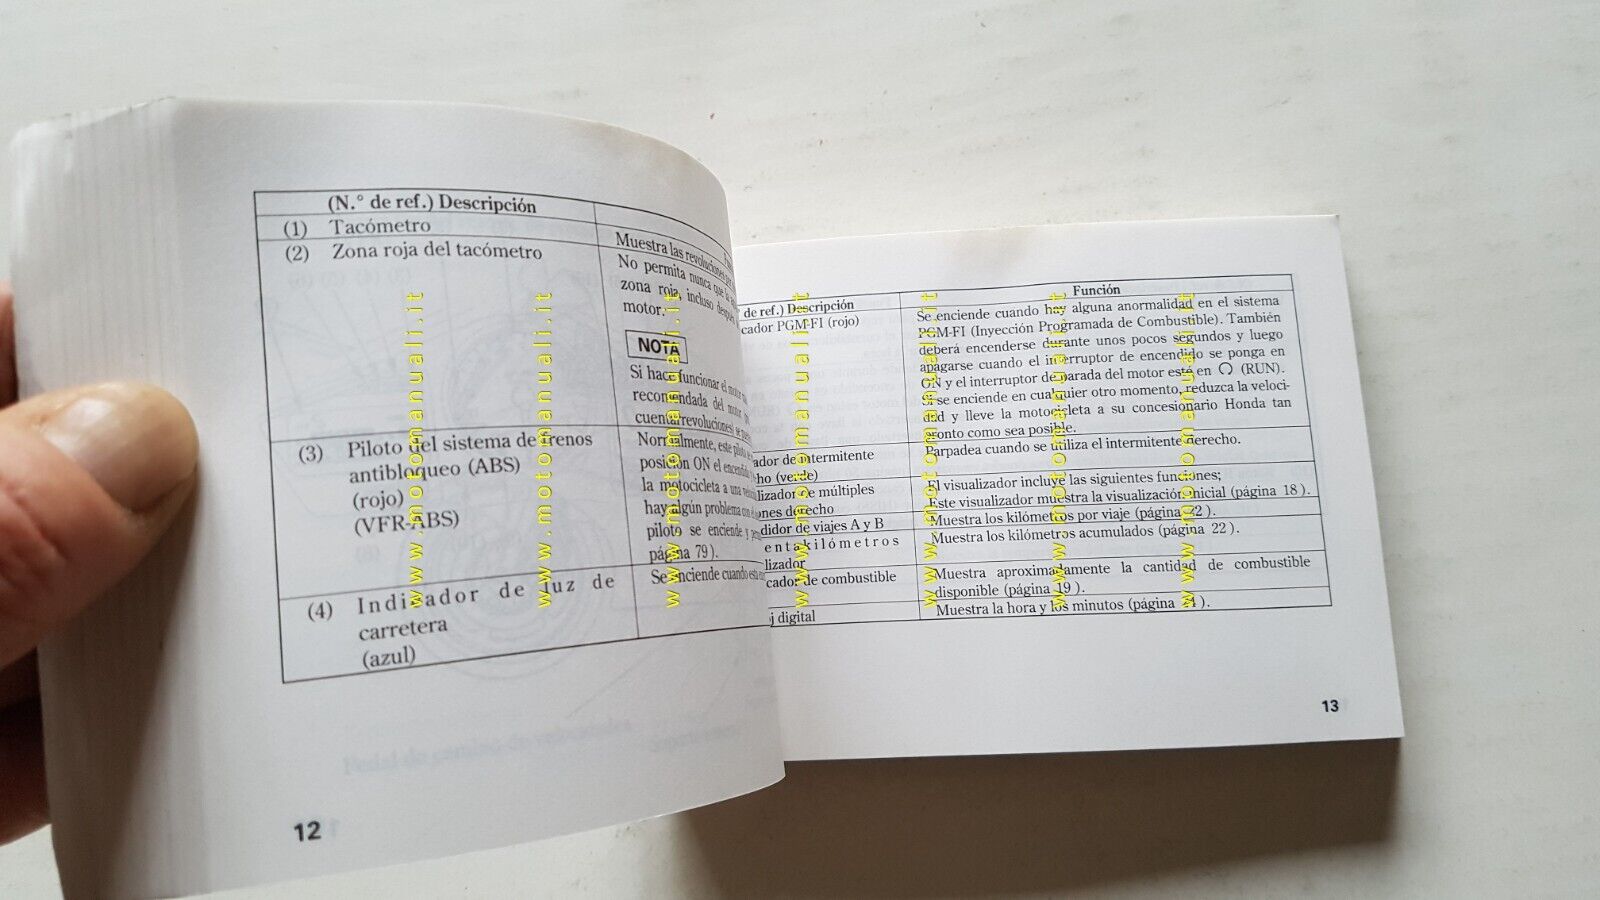 (N.° de ref.) Descripción
(1) Tacómetro
(2) Zona roja del tacómetro
Muestra las revoluciones
No permita nunca que la
zona roja, incluso después
motor.
NOTA
Si hace funcionar el motor
recomendada del motor
cuentarrevoluciones) se
(3) Piloto del sistema de frenos
antibloqueo (ABS)
(rojo)
(VFR-ABS)
Normalmente, este piloto se
posición ON el encendido
la motocicleta a una
hay algún problema con
piloto se enciende y
página 79).
(4) Indicador de luz de
carretera
(azul)
Se enciende cuando
12
de ref.) Descripción
Función
cador PGM-FI (rojo)
Se enciende cuando hay alguna anormalidad en el sistema
PGM-FI (Inyección Programada de Combustible). También
deberá encenderse durante unos pocos segundos y luego
apagarse cuando el interruptor de encendido se ponga en
ON y el interruptor de parada del motor esté en (RUN).
Si se enciende en cualquier otro momento, reduzca la veloci-
dad y lleve la motocicleta a su concesionario Honda tan
pronto como sea posible.
ador de intermitente
cho (verde)
Parpadea cuando se utiliza el intermitente derecho.
lizador de múltiples
iones derecho
El visualizador incluye las siguientes funciones;
Este visualizador muestra la visualización inicial (página 18).
didor de viajes A y B
Muestra los kilómetros por viaje (página 22).
entakilómetros
lizador
Muestra los kilómetros acumulados (página 22).
cador de combustible
Muestra aproximadamente la cantidad de combustible
disponible (página 19).
j digital
Muestra la hora y los minutos (página 21).
13
www.motomanuali.it
www.motomanuali.it
www.motomanuali.it
www.motomanuali.it
www.motomanuali.it
www.motomanuali.it
www.motomanuali.it